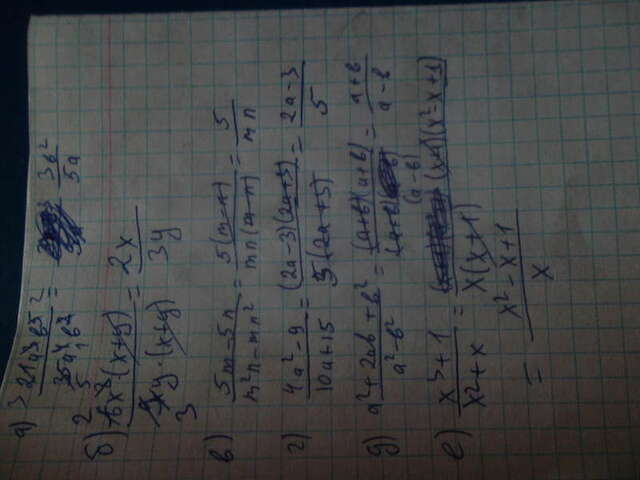 а) 21a³b⁵ / 35a⁴b³ = 3b² / 5a
б) 6x³·(x+y) / 9xy·(x+y) = 2x / 3y
в) 5m-5n / m²n-mn² = 5(m-n) / mn(m-n) = 5 / mn
г) 4a²-9 / 10a+15 = (2a-3)(2a+3) / 5(2a+3) = 2a-3 / 5
д) a²+2ab+b² / a²-b² = (a+b)(a+b) / (a+b)(a-b) = a+b / a-b
е) x³+1 / x²+x = (x+1)(x²-x+1) / x(x+1)
= x²-x+1 / x